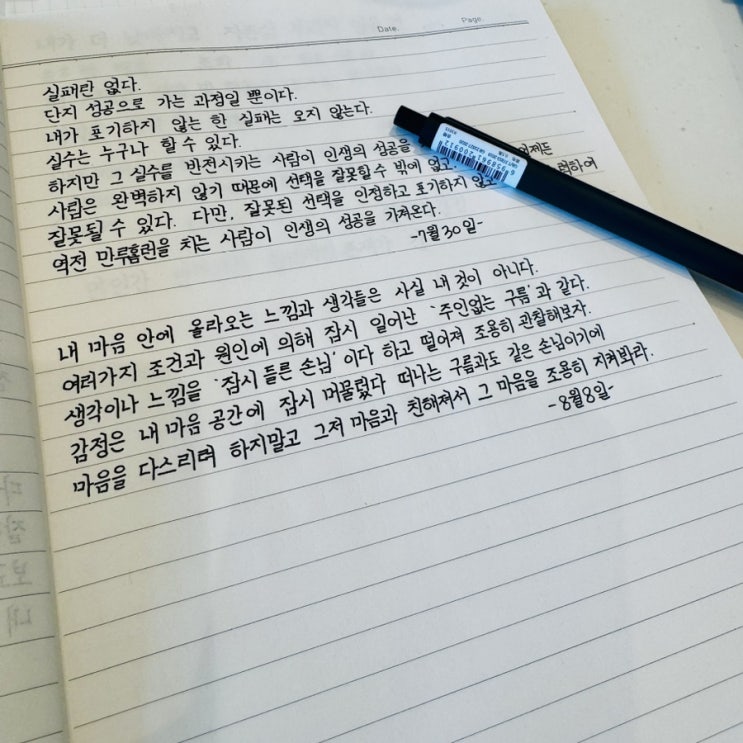 Date.
Page.
실패란 없다.
단지 성공으로 가는 과정일 뿐이다.
내가 포기하지 않는 한 실패는 오지 않는다.
실수는 누구나 할 수 있다.
하지만 그 실수를 반전시키는 사람이 인생의 성공을
사람은 완벽하지 않기 때문에 선택을 잘못할 수 밖에 없고. 언제든
잘못될 수 있다. 다만, 잘못된 선택을 인정하고 포기하지 않고 력하여
역전 만루홈런을 치는 사람이 인생의 성공을 가져온다.
-7월 30일-
내 마음 안에 올라오는 느낌과 생각들은 사실 내 것이 아니다.
여러가지 조건과 원인에 의해 잠시 일어난 '주인없는 구름'과 같다.
생각이나 느낌을 '잠시 들른 손님'이다 하고 떨어져 조용히 관찰해보자.
감정은 내 마음 공간에 잠시 머물렀다 떠나는 구름과도 같은 손님이기에
마음을 다스리려 하지말고 그저 마음과 친해져서 그 마음을 조용히 지켜봐라.
-8월 8일-